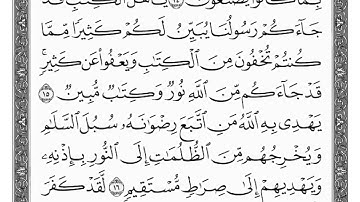 بِمَا كَانُوا۟ يَصْنَعُونَ ۝١٤ يَـٰٓأَهْلَ ٱلْكِتَـٰبِ قَدْ
جَآءَكُمْ رَسُولُنَا يُبَيِّنُ لَكُمْ كَثِيرًا مِّمَّا
كُنتُمْ تُخْفُونَ مِنَ ٱلْكِتَـٰبِ وَيَعْفُوا۟ عَن كَثِيرٍ ۚ
قَدْ جَآءَكُم مِّنَ ٱللَّهِ نُورٌ وَكِتَـٰبٌ مُّبِينٌ ۝١٥
يَهْدِى بِهِ ٱللَّهُ مَنِ ٱتَّبَعَ رِضْوَٰنَهُۥ سُبُلَ ٱلسَّلَـٰمِ
وَيُخْرِجُهُم مِّنَ ٱلظُّلُمَـٰتِ إِلَى ٱلنُّورِ بِإِذْنِهِۦ
وَيَهْدِيهِمْ إِلَىٰ صِرَٰطٍ مُّسْتَقِيمٍ ۝١٦ لَّقَدْ كَفَرَ